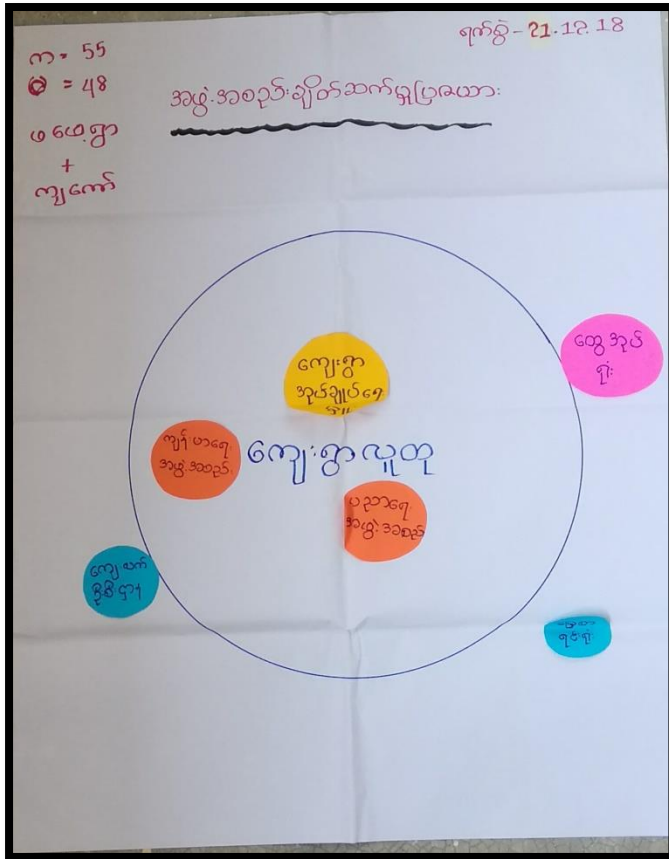 ရက်စွဲ - 21.12.18
ကျ = 55
မ = 48
ဖမှော့ရွာ
+
ကျကော်
အဖွဲ့အစည်းချိတ်ဆက်မှုပြဇယား
ကျေးရွာ
အုပ်ချုပ်ရေး
တွေအုပ်
ရုံး
ကျန်းမာရေး
အဖွဲ့အစည်း
ကျေးရွာလူတု
ပညာရေး
အဖွဲ့အစည်း
ကျေးလက်
ဦးစီးဌာန
ရင်းရုံး